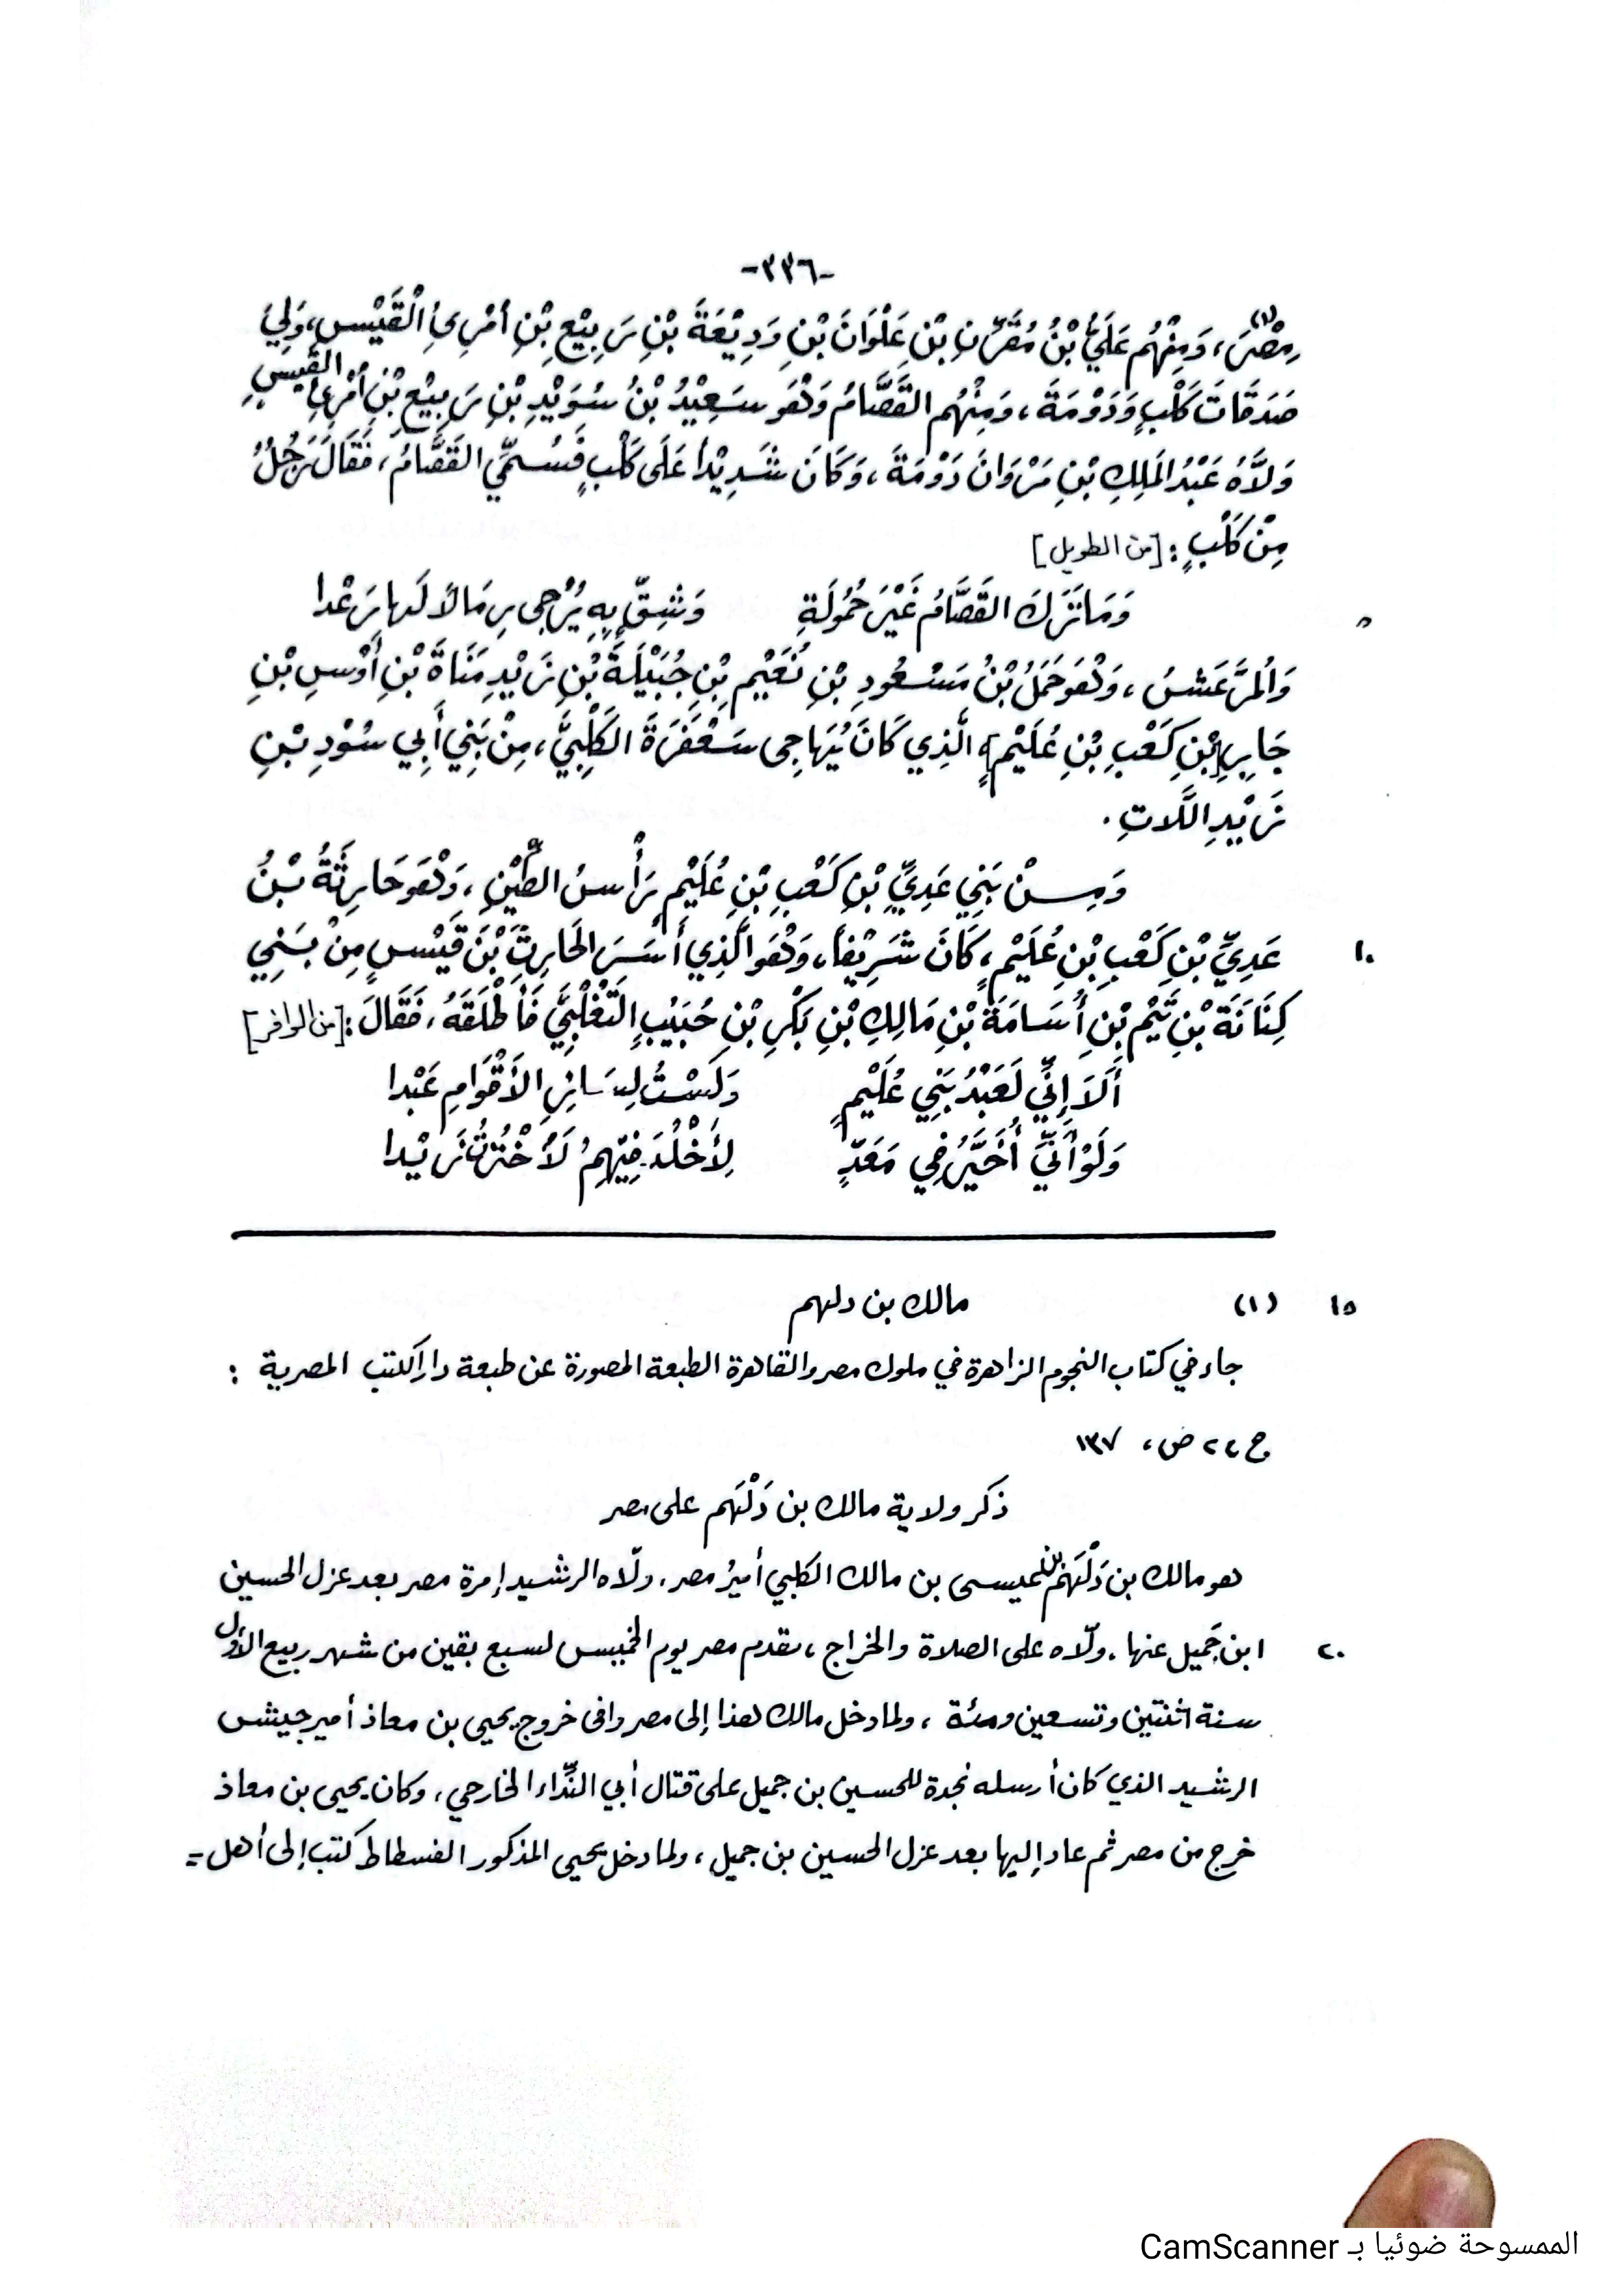 -٣٣٦-
مِصْرَ(١)، وَمِنْهُم عَلَيُّ بْنُ مُقَرِّنِ بْنِ عَلْوَانَ بْنِ وَدِيْعَةَ بْنِ رَبِيْعِ بْنِ اُمْرِئِ الْقَيْسِ، وَلِيَ
صَدَقَاتَ كَلْبٍ وَدَوْمَةَ، وَمِنْهُم القَصَّامُ وَهْوَ سَعِيْدُ بْنُ سُوَيْدِ بْنِ رَبِيْعِ بْنِ اُمْرِئِ القَيْسِ
وَلاَّهُ عَبْدُ المَلِكِ بْنِ مَرْوَانَ دَوْمَةَ، وَكَانَ شَدِيْداً عَلَى كَلْبٍ فَسُمِّيَ القَصَّامُ، فَقَالَ رَجُلٌ
مِنْ كَلْبٍ: [من الطويل]
وَمَا تَرَكَ القَصَّامُ غَيْرَ حُمُولَةِ وَشِقٍّ بِهِ يُزْجِى رِمَالاً لَهَا رَعْدا
وَالمُرَعَّشُ، وَهْوَ حَمَلُ بْنُ مَسْعُودِ بْنِ نُعَيْمِ بْنِ جُبَيْلَةَ بْنِ زَيْدِ مَنَاةَ بْنِ أَوْسِ بْنِ
جَابِرِ [بْنِ كَعْبِ بْنِ عُلَيْمٍ] الَّذِي كَانَ يُهَاجِى سَعْفَرَةَ الكَلْبِيَّ، مِنْ بَنِي أَبِي سُوْدِ بْنِ
زَيْدِ اللَّاتِ.
وَمِنْ بَنِي عَدِيِّ بْنِ كَعْبِ بْنِ عُلَيْمٍ رَأْسُ الطِّيْنِ، وَهْوَ حَارِثَةُ بْنُ
١٠ عَدِيِّ بْنِ كَعْبِ بْنِ عُلَيْمٍ، كَانَ شَرِيْفاً، وَهْوَ الَّذِي أَسَرَ الحَارِثَ بْنَ قَيْسٍ مِنْ بَنِي
كِنَانَةَ بْنِ تَيْمِ بْنِ أُسَامَةَ بْنِ مَالِكِ بْنِ بَكْرِ بْنِ حُبَيْبٍ التَّغْلِبِيَّ فَأَطْلَقَهُ، فَقَالَ: [من الوافر]
أَلاَ إِنِّي لَعَبْدُ بَنِي عُلَيْمٍ وَلَسْتُ لِسَائِرِ الأَقْوَامِ عَبْدا
وَلَوْ أَنِّي أُخَيَّرُ فِي مَعَدٍّ لِأَخْلُدَ فِيْهِمُ لَأُخْتَرْتُ زَيْدا
١٥ (١) مالك بن دلهم
جاء في كتاب النجوم الزاهرة في ملوك مصر والقاهرة الطبعة المصورة عن طبعة دار الكتب المصرية :
ج ٢، ص، ١٣٧
ذكر ولاية مالك بن دَلْهَم على مصر
هو مالك بن دَلْهَم بن عيسى بن مالك الكلبي أميرُ مصر. ولّاه الرشيد إمرة مصر بعد عزل الحسين
٢٠ ابن جَميل عنها. ولّاه على الصلاة والخراج، فقدم مصر يوم الخميس لسبع بقين من شهر ربيع الأوّل
سنة اثنتين وتسعين ومئة ، ولما دخل مالك هذا إلى مصر وافى خروج يحيى بن معاذ أمير جيش
الرشيد الذي كان أرسله نجدة للحسين بن جميل على قتال أبي النِّداء الخارجي، وكان يحيى بن معاذ
خرج من مصر ثم عاد إليها بعد عزل الحسين بن جميل، ولما دخل يحيى المذكور الفسطاط كتب إلى أهل =
الممسوحة ضوئيا بـ CamScanner